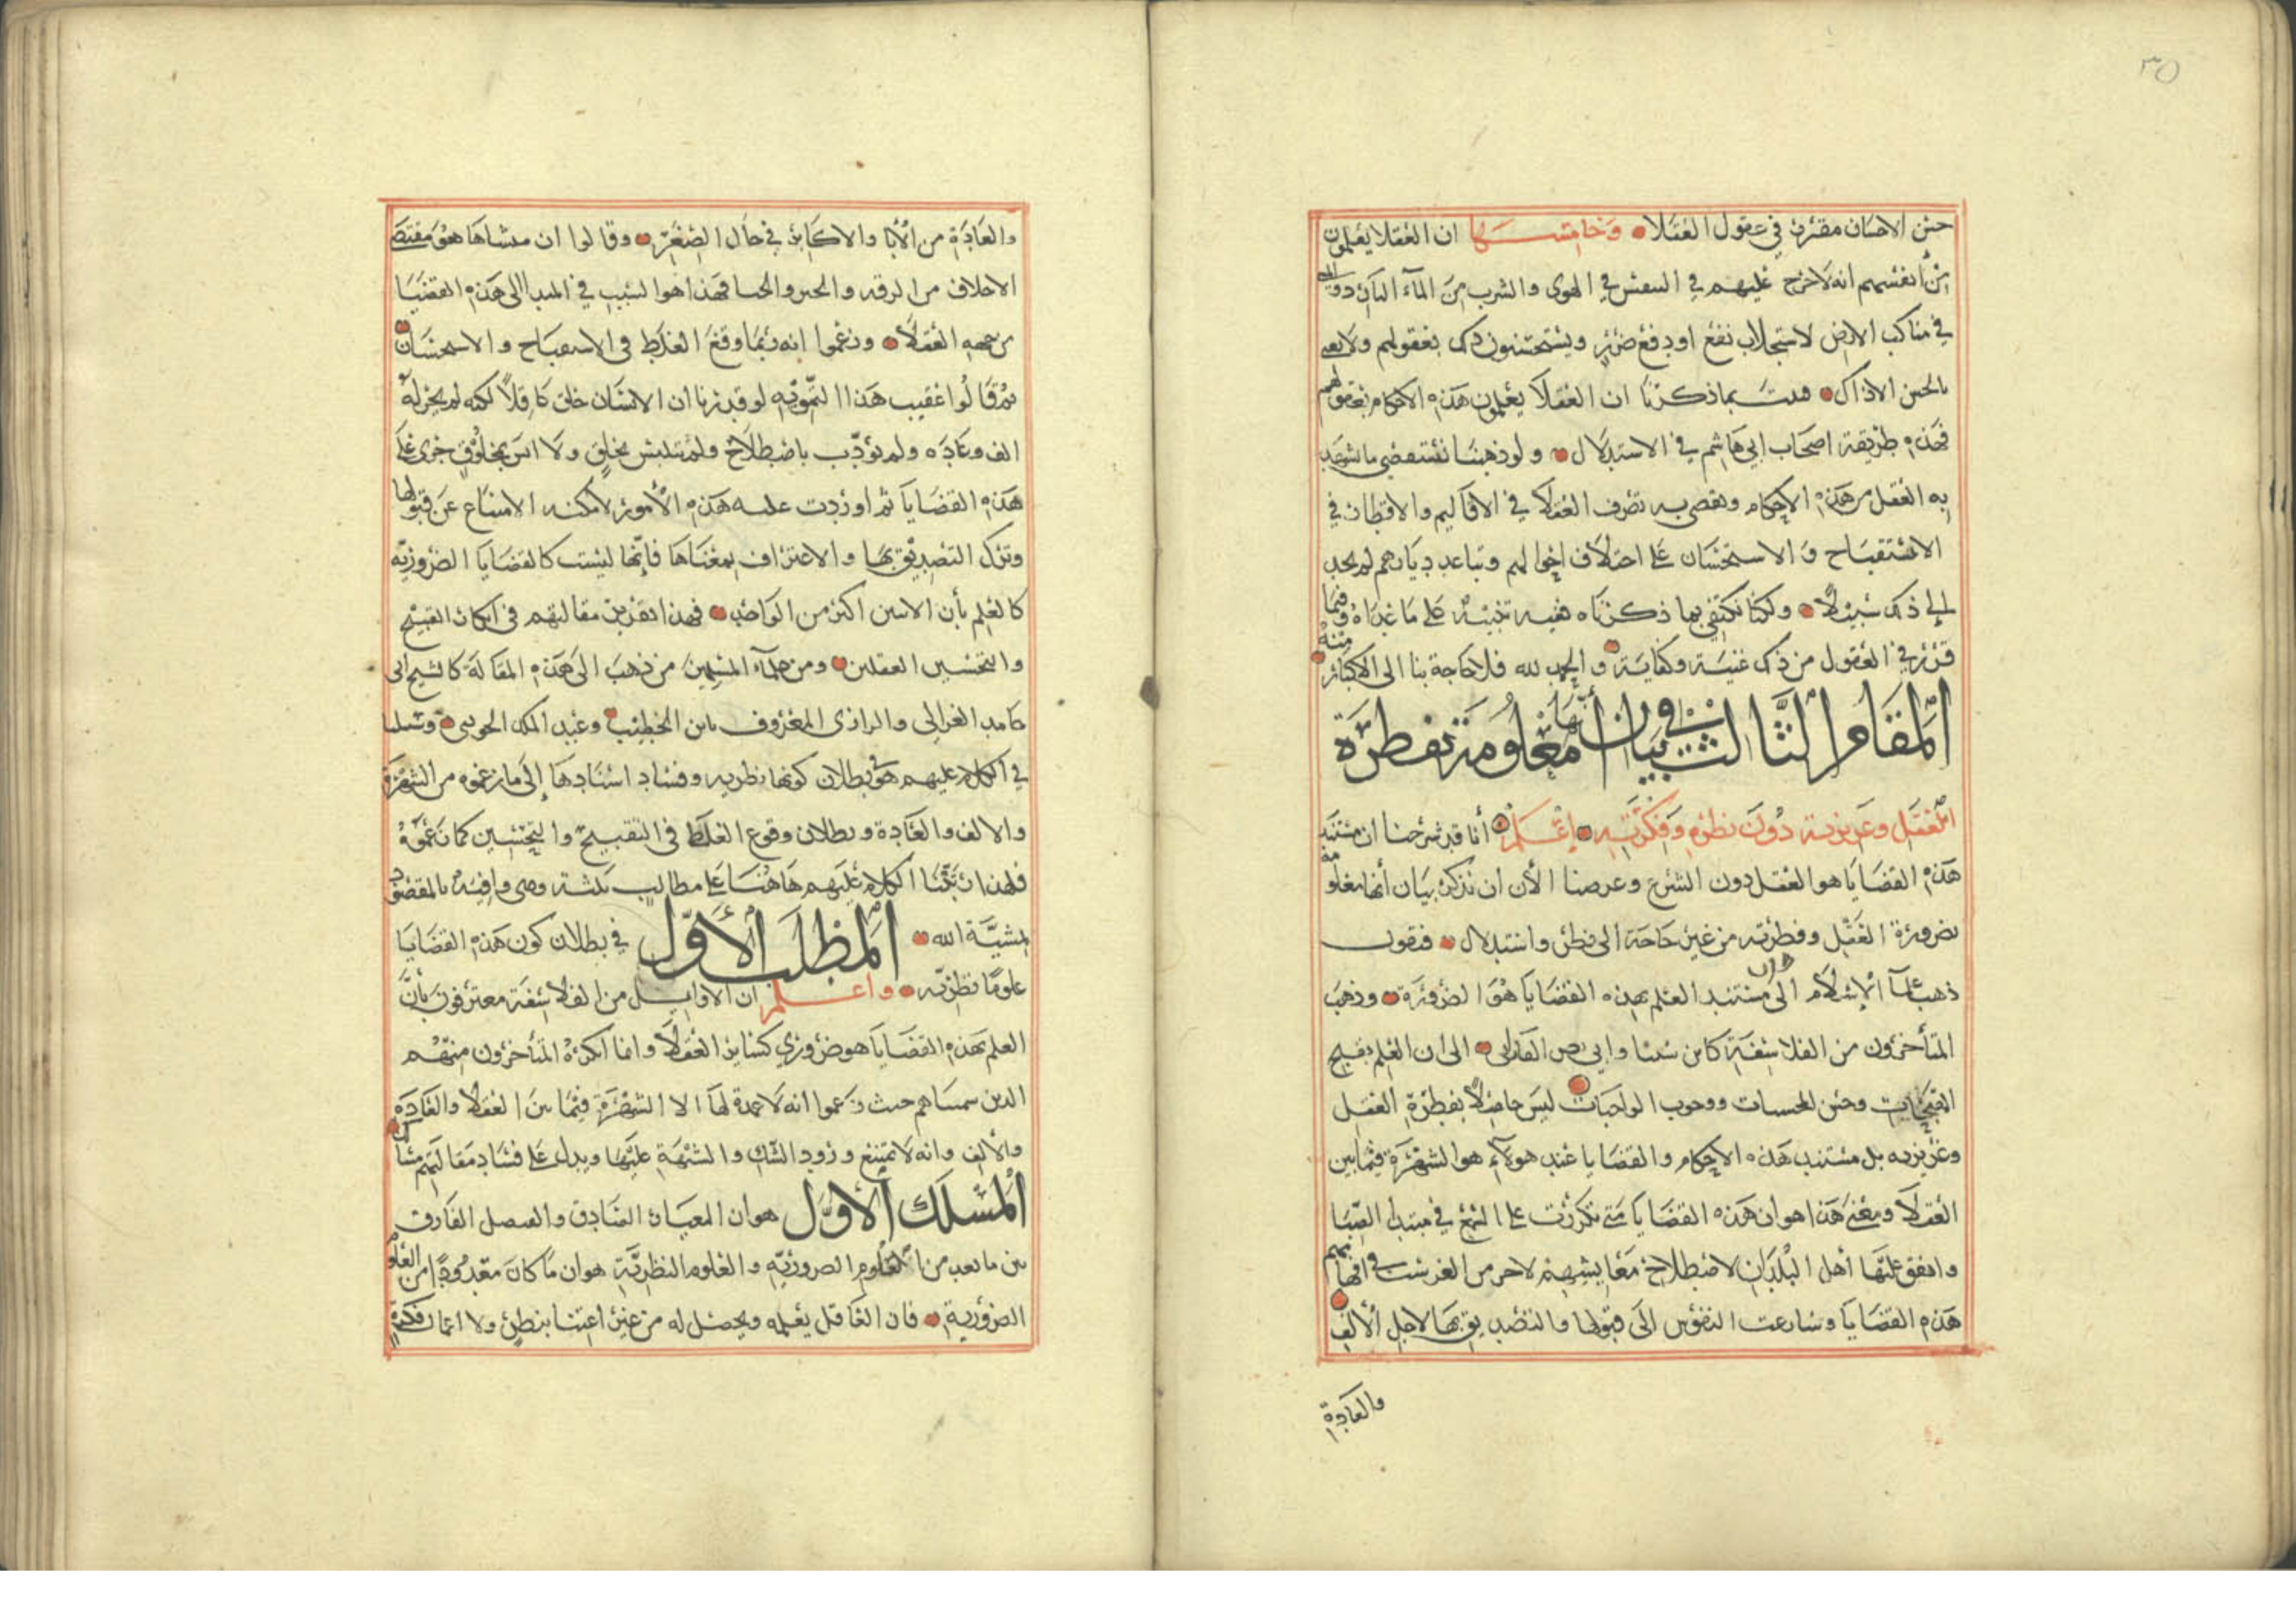 ٣٥
حسن الاحسان مقرر في عقول العقلا وخامسها ان العقلا يعلمون
من أنفسهم انه لا حرج عليهم في التنفس في الهوى والشرب من المآء
في مناكب الارض لاستجلاب نفع او دفع ضرر ويستحسنون ذلك بعقولهم ولا يعنى
بالحسن الا ذاك فثبت بما ذكرنا ان العقلا يعلمون هذه الاحكام بعقولهم
فهذه طريقة اصحاب ابي هاشم في الاستدلال ولو ذهبنا نستقصي ما تشهد
به العقل من هذه الاحكام ويقضي به تصرف العقلا في الاقاليم والاقطار في
الاستقباح والاستحسان على اختلاف احوالهم وتباعد ديارهم لم يجد
إلى ذلك سبيلا ولكنا نكتفي بما ذكرناه ففيه تنبيه على ما عداه وفيما
قرر في العقول من ذلك غنية وكفاية والحمد لله فلا حاجة بنا الى الاكثار منه
المقام الثالث في بيان أنها معلومة بفطرة
العقل وغريزته دون نظره وفكرته إعلم أنا قد شرحنا ان مستند
هذه القضايا هو العقل دون الشرع وغرضنا الأن ان نذكر بيان أنها معلومة
بضرورة العقل وفطرته من غير حاجة الى نظر واستدلال فنقول
ذهب علمآ الإسلام الى ان مستند العلم بهذه القضايا هو الضرورة وذهب
المتأخرون من الفلاسفة كابن سينا وابي نصر الفارابى الى ان العلم بقبح
المقبحات وحسن المحسنات ووجوب الواجبات ليس حاصلا بفطرة العقل
وغريزته بل مستند هذه الاحكام والقضايا عند هولآء هو الشهرة فيما بين
العقلا ومعنى هذا هو ان هذه القضايا متى تكررت على السمع في مبتدا الصبا
واتفق عليها أهل البلدان لاصطلاح معايشهم لاجرم انغرست في افهامهم
هذه القضايا وسارعت النفوس الى قبولها والتصديق بها لاجل الألف
والعادة
والعادة من الأبا والاكابر في حال الصغر وقالوا ان منشاها هو مقتضى
الاخلاق من الرقه والجبن والحيا فهذا هو السبب في المبدا الى هذه القضايا
من جهه العقلا وزعموا انه ربما وقع الغلط في الاستقباح والاستحسان
ثم قالوا عقيب هذا التمويه لو قدرنا ان الانسان خلق كاملا لكنه لم يجز له
الف وعادة ولم يؤدب باصطلاح ولم يتلبس بخلق ولا انس بمخلوق
هذه القضايا ثم اوردت عليه هذه الأمور لامكنه الامتناع عن قبولها
وترك التصديق بها والاعتراف بمعناها فإنها ليست كالقضايا الضرورية
كالعلم بأن الاثنين اكثر من الواحد فهذا تقرير مقالتهم في انكار التقبيح
والتحسين العقلين ومن علمآء المسلمين من ذهب الى هذه المقالة كالشيخ ابي
حامد الغزالي والرازى المعروف بابن الخطيب وعبد الملك الجويني وسبيلنا
في الكلام عليهم هو بطلان كونها نظريه وفساد اسنادها إلى ما زعموه من الشهرة
والالف والعادة وبطلان وقوع الغلط في التقبيح والتحسين كما زعموه
فلهذا رتبنا الكلام عليهم هاهنا على مطالب ثلثة وهي وافية بالمقصود
بمشيّة الله المطلب الأول في بطلان كون هذه القضايا
علوما نظرية واعلم ان الاوايل من الفلاسفة معترفون بأن
العلم بهذه القضايا هو ضروري كساير العقلا وانما انكره المتأخرون منهم
الذين سميناهم حيث زعموا انه لا عمدة لها الا الشهرة فيما بين العقلا والعادة
والألف وانه لا يمتنع ورود الشك والشبهة عليها ويدل على فساد مقالتهم
المسلك الأول هو ان المعيار الصادق والفصل الفارق
بين ما يعد من العلوم الضرورية والعلوم النظرية هو ان ما كان معدودا من العلوم
الضرورية فان العاقل يعلمه ويحصل له من غير اعتنا بنظر ولا اتعاب فكرة